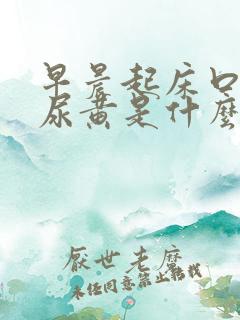 早晨起床口
尿黄是什麼
厭世老麽
未经同意禁止转载